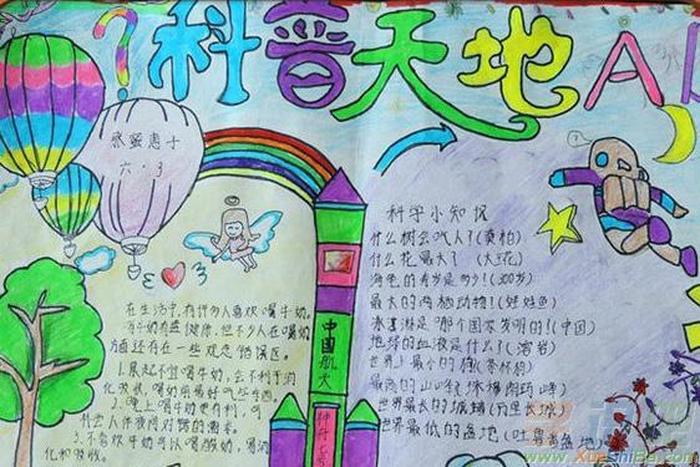 科普天地A
张蛋惠子
六·3
在生活中,有许多人喜欢喝牛奶。
喝牛奶有益健康,但不少人在喝奶
方面还存在一些观念错误区。
1.晨起不宜喝牛奶,会不利于消
化吸收,喝奶前最好吃些东西。
2.晚上喝牛奶更有利,可
3.不喜欢牛奶可以喝酸奶,
化和吸收。
中国航天
神舟七号
科学小知识
什么树会吃人?(奠柏)
什么花最大?(大王花)
海龟的寿命是多少!(300岁)
最大的两栖动物!(娃娃鱼)
冰激淋是哪个国家发明的!(中国)
地球的血液是什么?(溶岩)
世界上最小的(茶杯狗)
最高的山峰(珠穆朗玛峰)
世界最长的城墙(万里长城)
世界最低的盆地(吐鲁番盆地)
www.XueShiBa.com